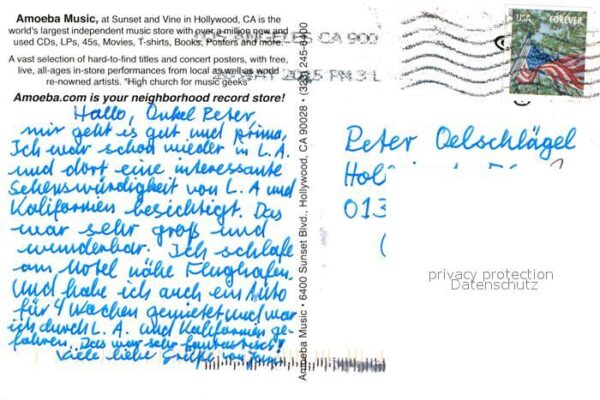 Amoeba Music, at Sunset and Vine in Hollywood, CA is the
world's largest independent music store with over a million new and
used CDs, LPs, 45s, Movies, T-shirts, Books, Posters and more.
A vast selection of hard-to-find titles and concert posters, with free,
live, all-ages in-store performances from local as well as world
re-nowned artists. "High church for music geeks"
Amoeba.com is your neighborhood record store!
Hallo, Onkel Peter,
mir geht es gut und prima,
Ich war schon wieder in L.A.
und dort eine interessante
Sehenswürdigkeit von L. A und
Kalifornien besichtigt. Das
war sehr groß und
wunderbar. Ich schlafe
am Motel nähe Flughafen.
Und habe ich auch ein Auto
für 4 Wochen gemietet und war
ich durch L. A. und Kalifornien ge-
fahren. Das war sehr fantastisch!
Viele liebe Grüße von
Amoeba Music • 6400 Sunset Blvd., Hollywood, CA 90028 • (323) 245-6400
LOS ANGELES CA 900
MAY 2015 PM 3 L
USA FOREVER
Peter Oelschlägel
013
privacy protection
Datenschutz